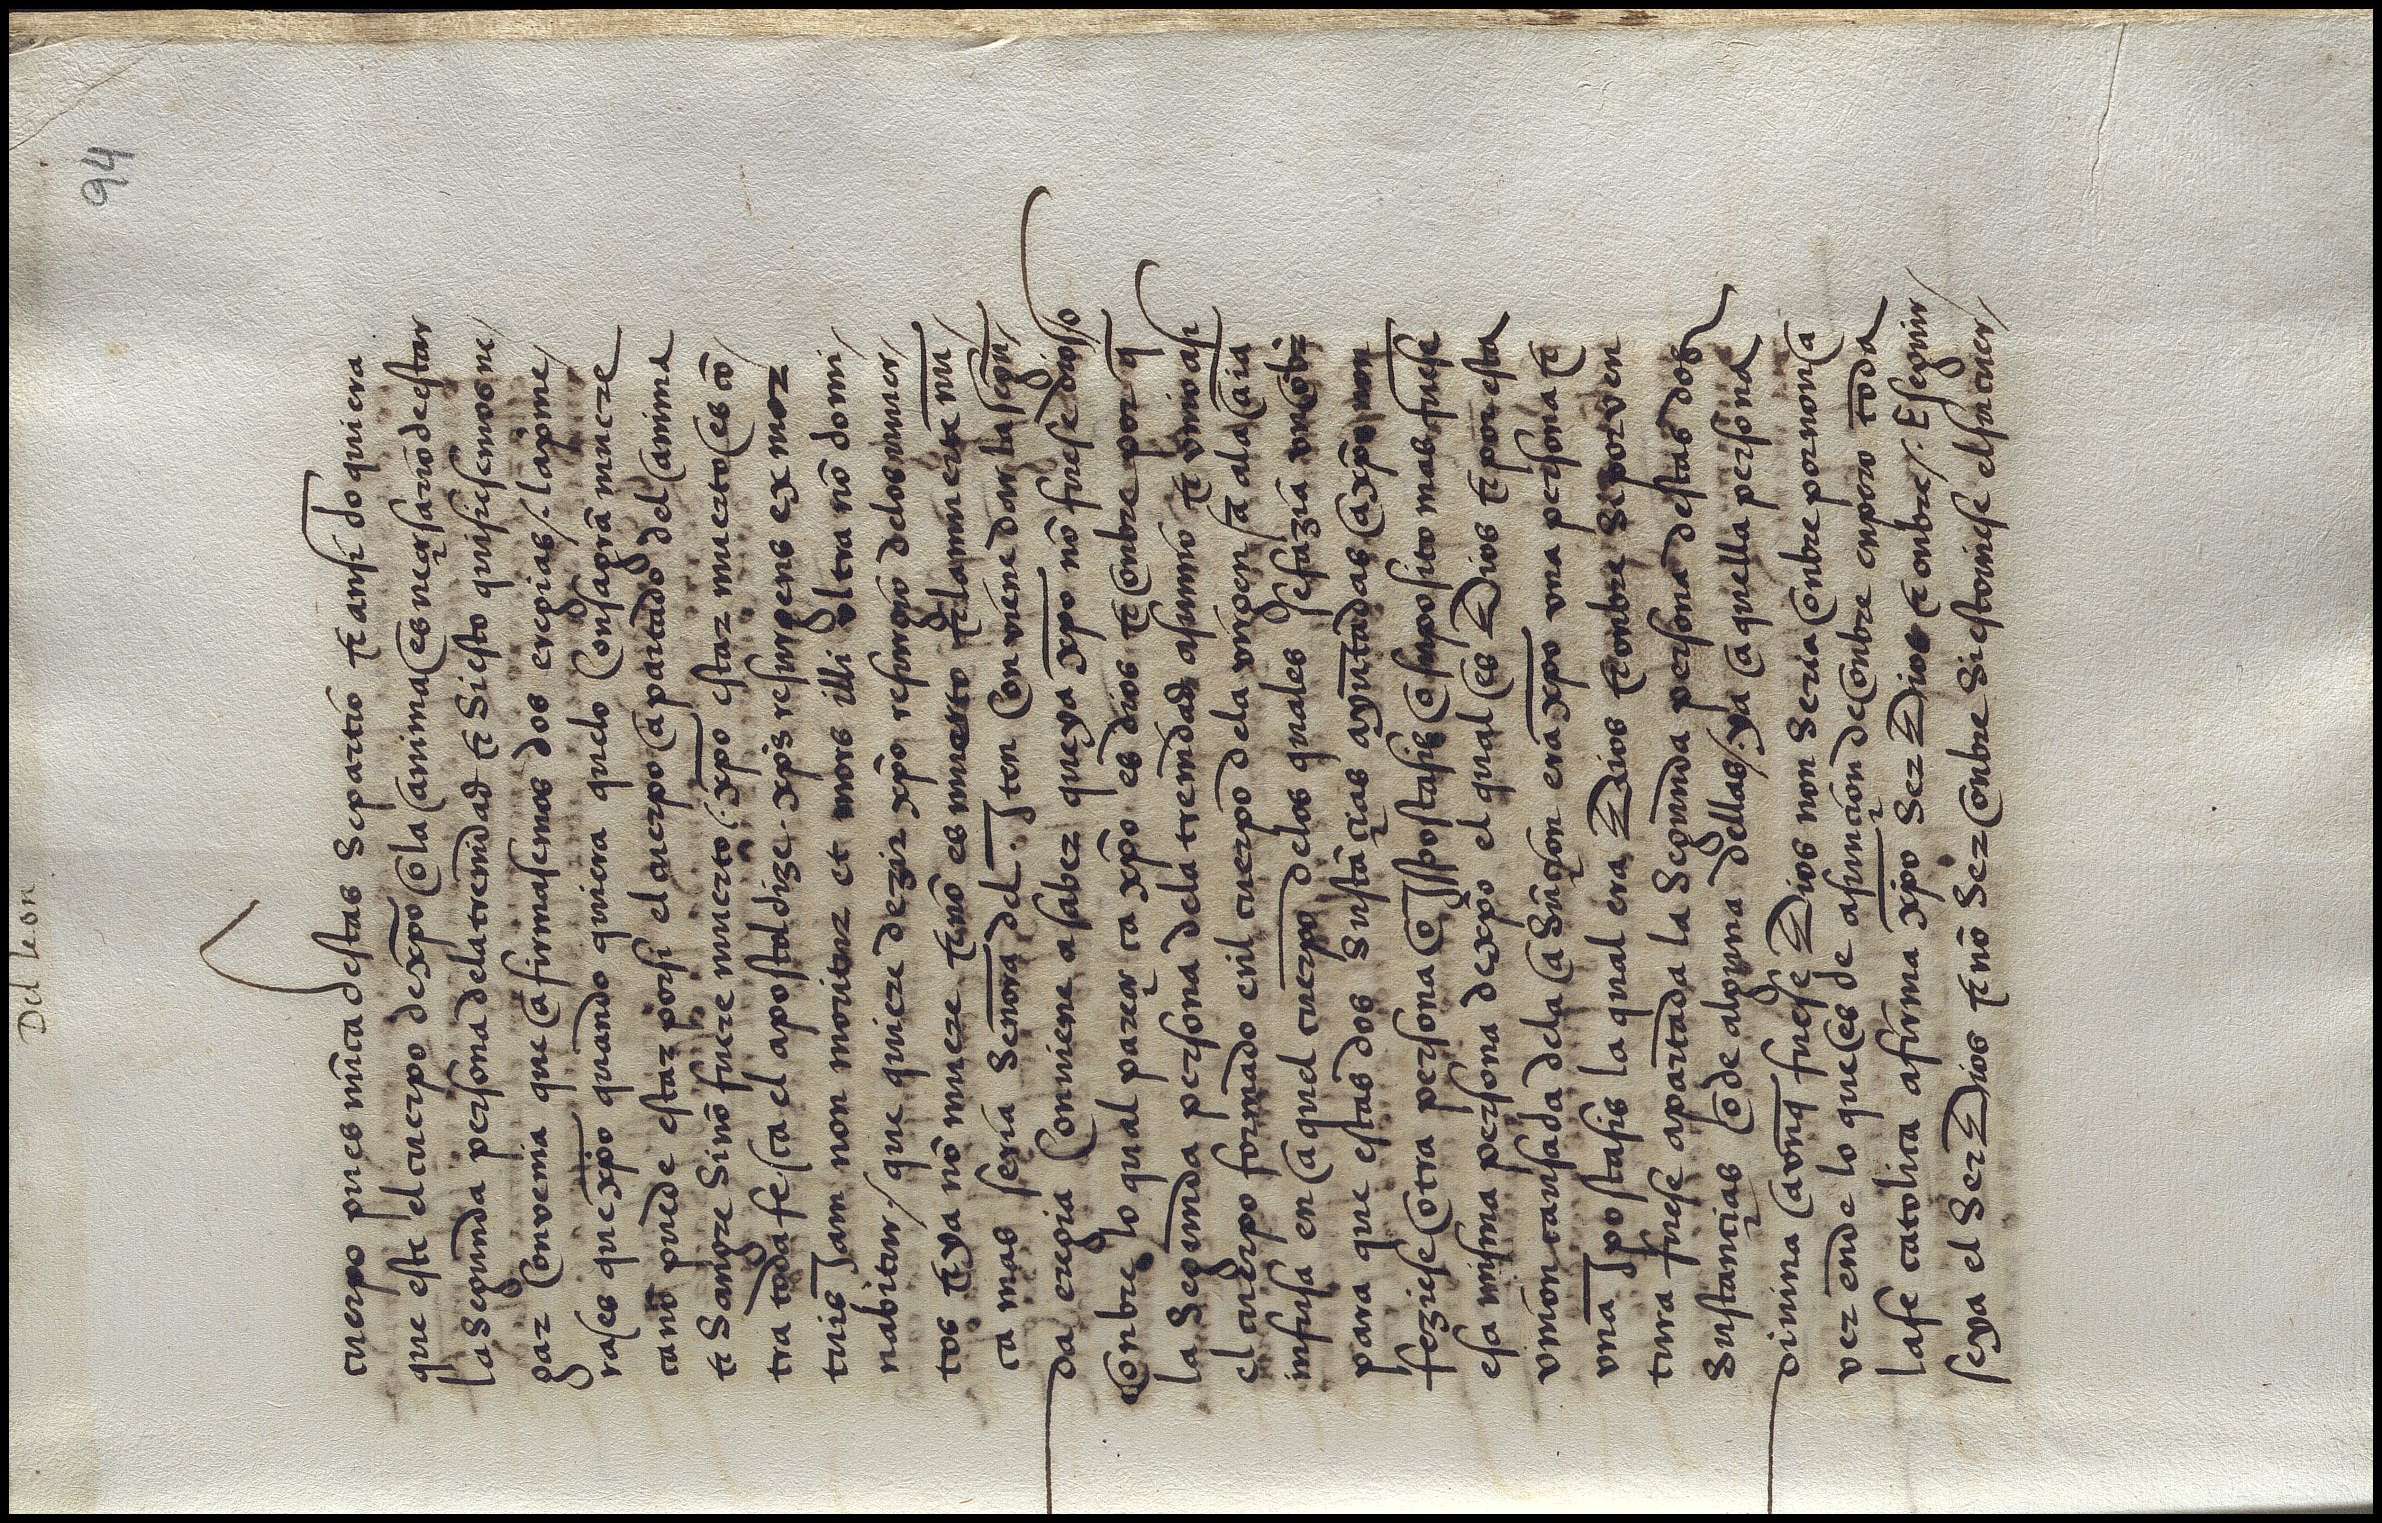 94
Del leon
cuerpo pues nũca destas se partio τ ansi do quiera
que este el cuerpo de xp̃o cõ la anima es neçesario de estar
la segunda persona dela trenidad τ si esto quisiesemos ne
gar convenia que afirmasemos dos eregias / la pͥme
ra es que xp̃o quando quiera quelo consagrã muere
ca nõ puede estar por si el cuerpo apartado del anima
τ sangre sinõ fuere muerto / xp̃o estar muerto es cõ
tra toda fe / ca el apostol dize xp̃s resurgens ex mor
tuis Jam non moritur et mors illi vltra nõ domi
nabitur / que quiere dezir xp̃o resurgio delos muer
tos τ ya nõ muere τ nõ es muerto τ la muerte nũ
ca mas seria señora del . Iten conviene dar la segũ
da eregia conviene a saber que ya xp̃o nõ fuese dios /o
onbre lo qual pareçer ca xp̃o es dios τ onbre por q̃
la segunda persona dela trenidad asumio τ vnio asi
el cuerpo formado enel cuerpo dela virgen sã ala aĩa
infusa en aquel cuerpo delos quales se fazia vn onbre
para que estas dos sustãçias ayuntadas a xp̃o non
feziese otra persona o Jpostasis o suposito mas fuese
esa misma persona de xp̃o el qual es Dios τ por esta
vnion causada dela asũçion era xp̃o vna persona τ
vna Jpostasis la qual era Dios τ onbre se por ven
tura fuese apartada la segunda persona destas dos
sustançias o de alguna dellas / ya aquella persona
diuina avnq̃ fuese Dios non seria onbre por non a
ver ende lo que es de asunçion de onbre enpero toda
la fe catolica afirma xp̃o ser Dios τ onbre / E seguir
se ya el ser Dios τ nõ ser onbre si estoviese el su cuer